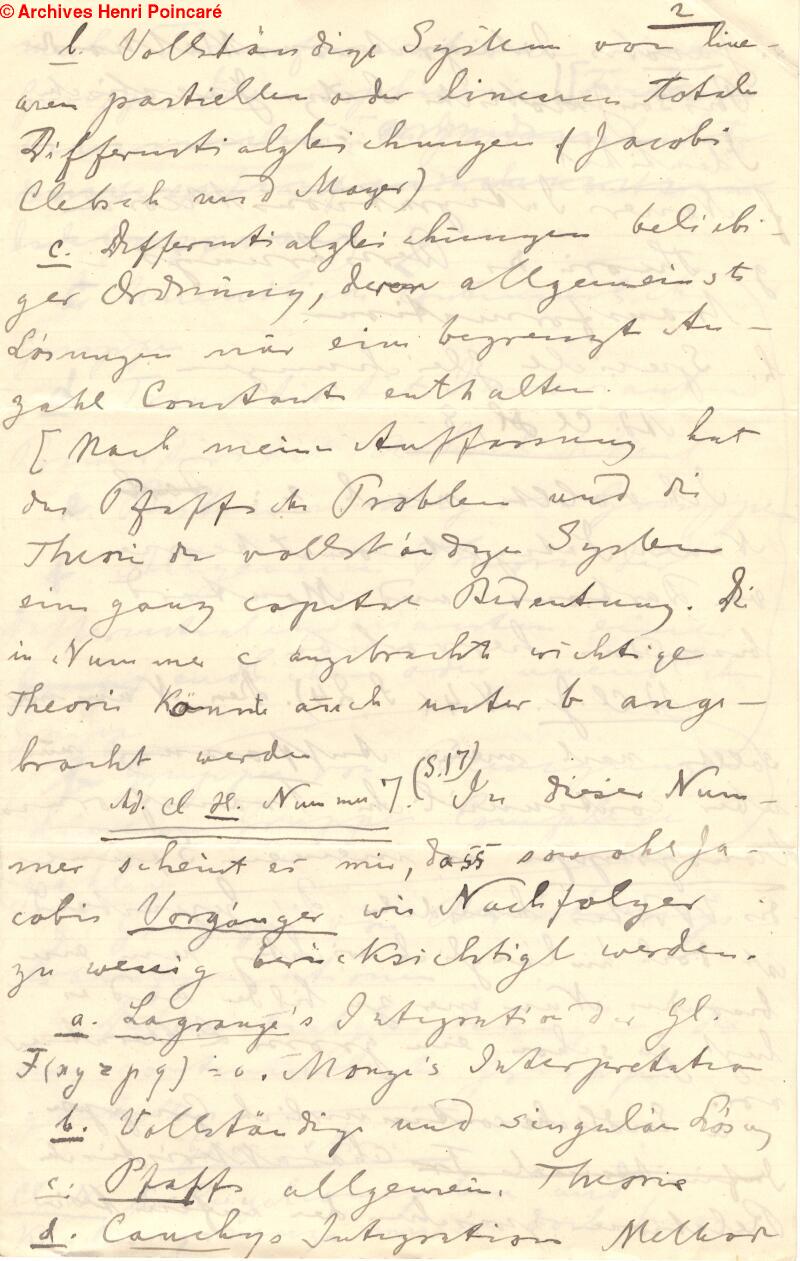 © Archives Henri Poincaré
2
b. Vollständige Systeme von line-
aren partiellen oder linearen Totale
Differentialgleichungen (Jacobi
Clebsch und Mayer)
c. Differentialgleichungen beliebi-
ger Ordnung, deren allgemeinste
Lösungen nur eine begrenzte An-
zahl Constante enthalten.
[Nach meiner Auffassung hat
das Pfaffsche Problem und die
Theorie der vollständigen Systeme
eine ganz capitale Bedeutung. Die
in Nummer c angebrachte wichtige
Theorie könnte auch unter b ange-
bracht werden
Ad. Cl H. Nummer 7. (S. 17) In dieser Num-
mer scheint es mir, dass sowohl Ja-
cobis Vorgänger wie Nachfolger
zu wenig berücksichtigt werden.
a. Lagrange's Integration der Gl.
F(xyzpq) = 0. Monge's Interpretation
b. Vollständige und singuläre Lösung
c. Pfaffs allgemein. Theorie
d. Cauchys Integrations Methode